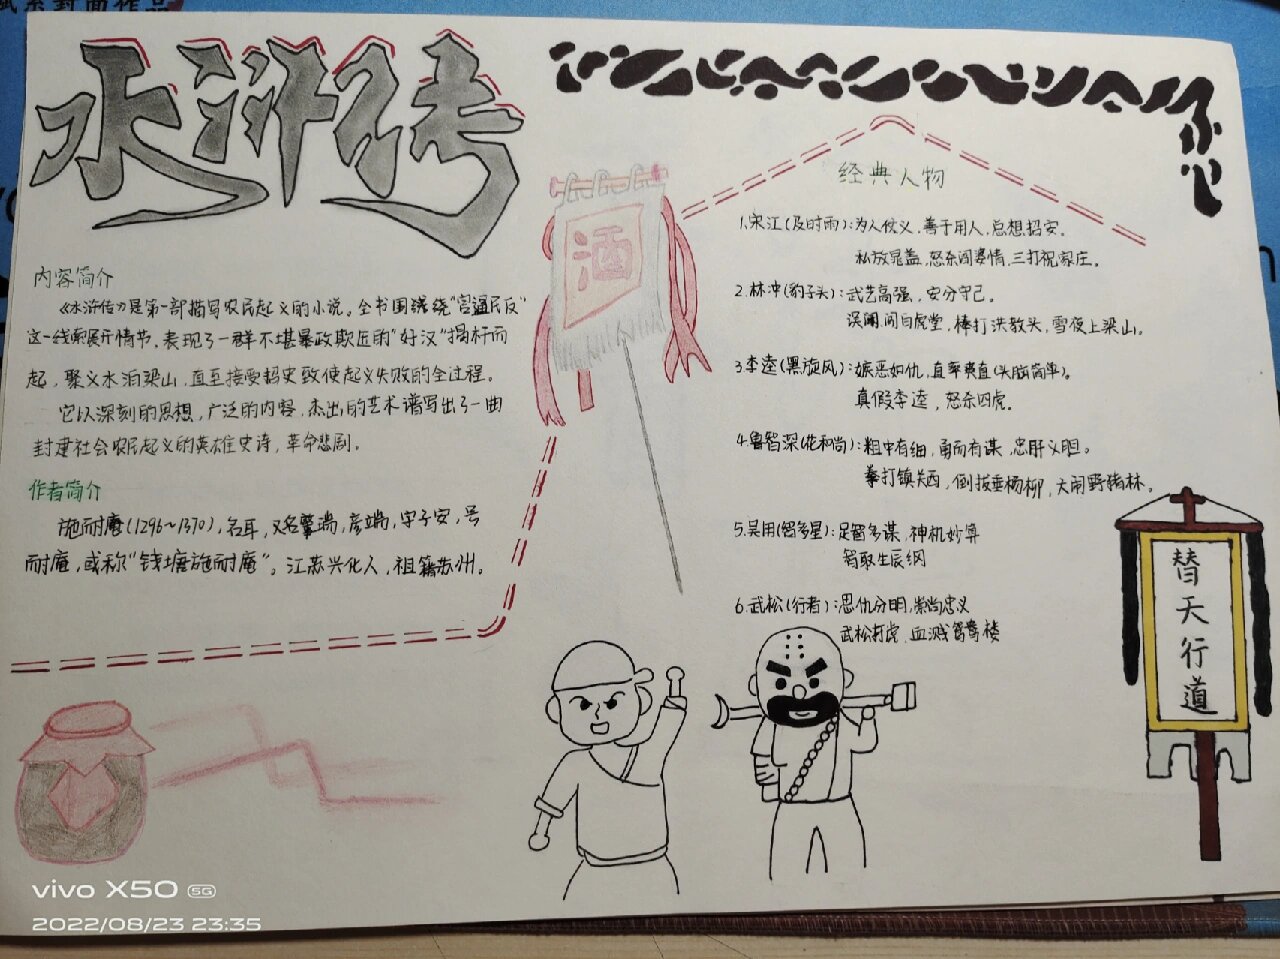 水浒传
内容简介
《水浒传》是第一部描写农民起义的小说。全书围绕绕"官逼民反"
这一线索展开情节,表现了一群不堪暴政欺压的"好汉"揭杆而
起,聚义水泊梁山,直至接受招安致使起义失败的全过程。
它以深刻的思想,广泛的内容,杰出的艺术谱写出了一曲
封建社会农民起义的英雄史诗,革命悲剧。
作者简介
施耐庵(1296~1370),名耳,又名肇瑞,彦端,字子安,号
耐庵,或称"钱塘施耐庵"。江苏兴化人,祖籍苏州。
酒
经典人物
1.宋江(及时雨):为人仗义,善于用人,总想招安。
私放晁盖,怒杀阎婆惜,三打祝家庄。
2.林冲(豹子头):武艺高强,安分守己。
误闯白虎堂,棒打洪教头,雪夜上梁山。
3.李逵(黑旋风):嫉恶如仇,直率爽直(头脑简单)。
真假李逵,怒杀四虎。
4.鲁智深(花和尚):粗中有细,勇而有谋,忠肝义胆。
拳打镇关西,倒拔垂杨柳,大闹野猪林。
5.吴用(智多星):足智多谋,神机妙算
智取生辰纲
6.武松(行者):恩仇分明,崇尚忠义
武松打虎,血溅鸳鸯楼
替天行道
vivo X50 5G
2022/08/23 23:35